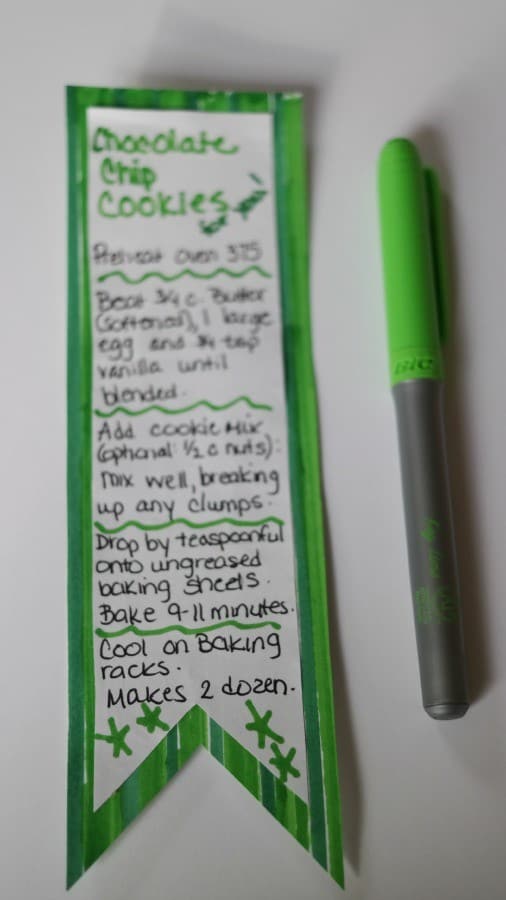 Chocolate
Chip
Cookies
Preheat oven 375
Beat 3/4 c. Butter
(softened), 1 large
egg and 3/4 tsp
vanilla until
blended.
Add cookie mix
(optional: 1/2 c nuts):
mix well, breaking
up any clumps.
Drop by teaspoonful
onto ungreased
baking sheets.
Bake 9-11 minutes.
Cool on Baking
racks.
Makes 2 dozen.
BIC